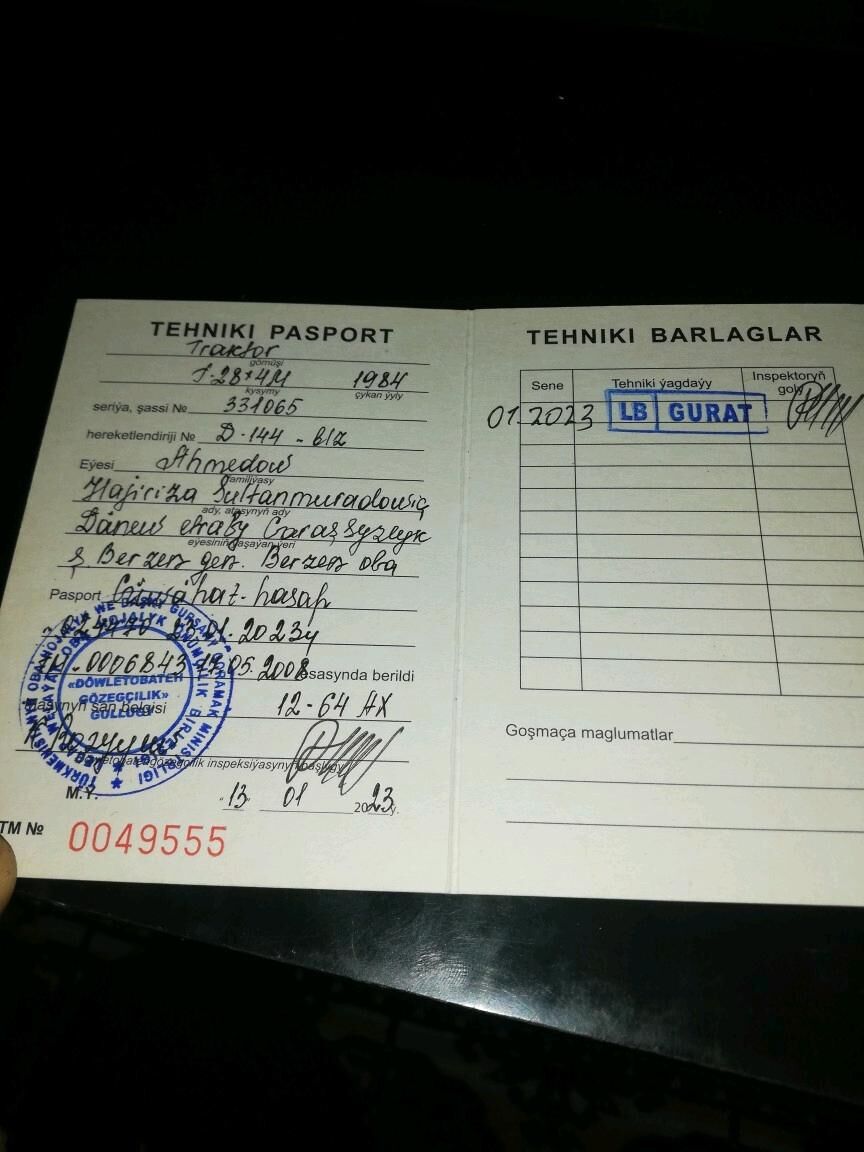 TEHNIKI PASPORT
Traktor
görnüşi
T-28*4M 1984
kysymy çykan ýyly
seriýa, şassi № 331065
hereketlendiriji № D-144 - B/Z
Eýesi Ahmedow
familiýasy
Hajiriza Sultanmuradowiç
ady, atasynyň ady
Dänew etraby Garaşsyzlyk
eýesiniň ýaşaýan ýeri
ş. Berzeň geň. Berzeň oba
Pasport hasap
23.01.2023ý
-0006843 05.2008 esasynda berildi
san belgisi 12-64 AX
inspeksiýasynyň başlygy
M.Ý. "13" 01 2023ý.
TM № 0049555
«DÖWLETOBATEH
GÖZEGÇILIK»
GULLUGY
TEHNIKI BARLAGLAR
Sene Tehniki ýagdaýy Inspektoryň goly
01.2023 LB GURAT
Goşmaça maglumatlar